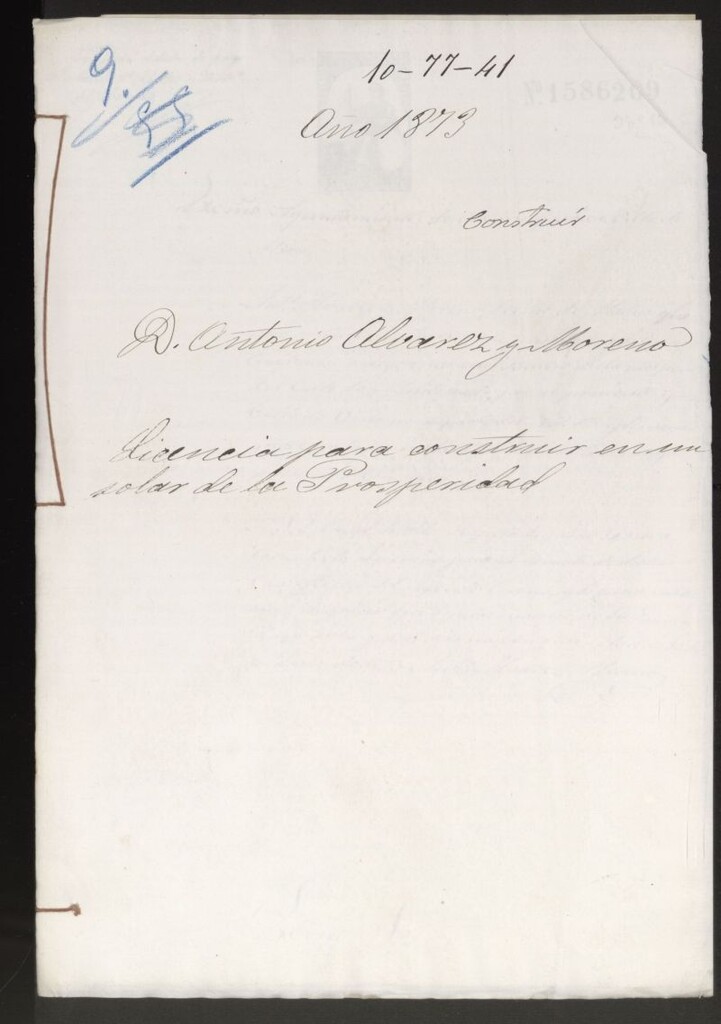 9.
10-77-41
Nº 1586269
Año 1873
Construir
D. Antonio Alvarez y Moreno
Licencia para construir en un
solar de la Prosperidad